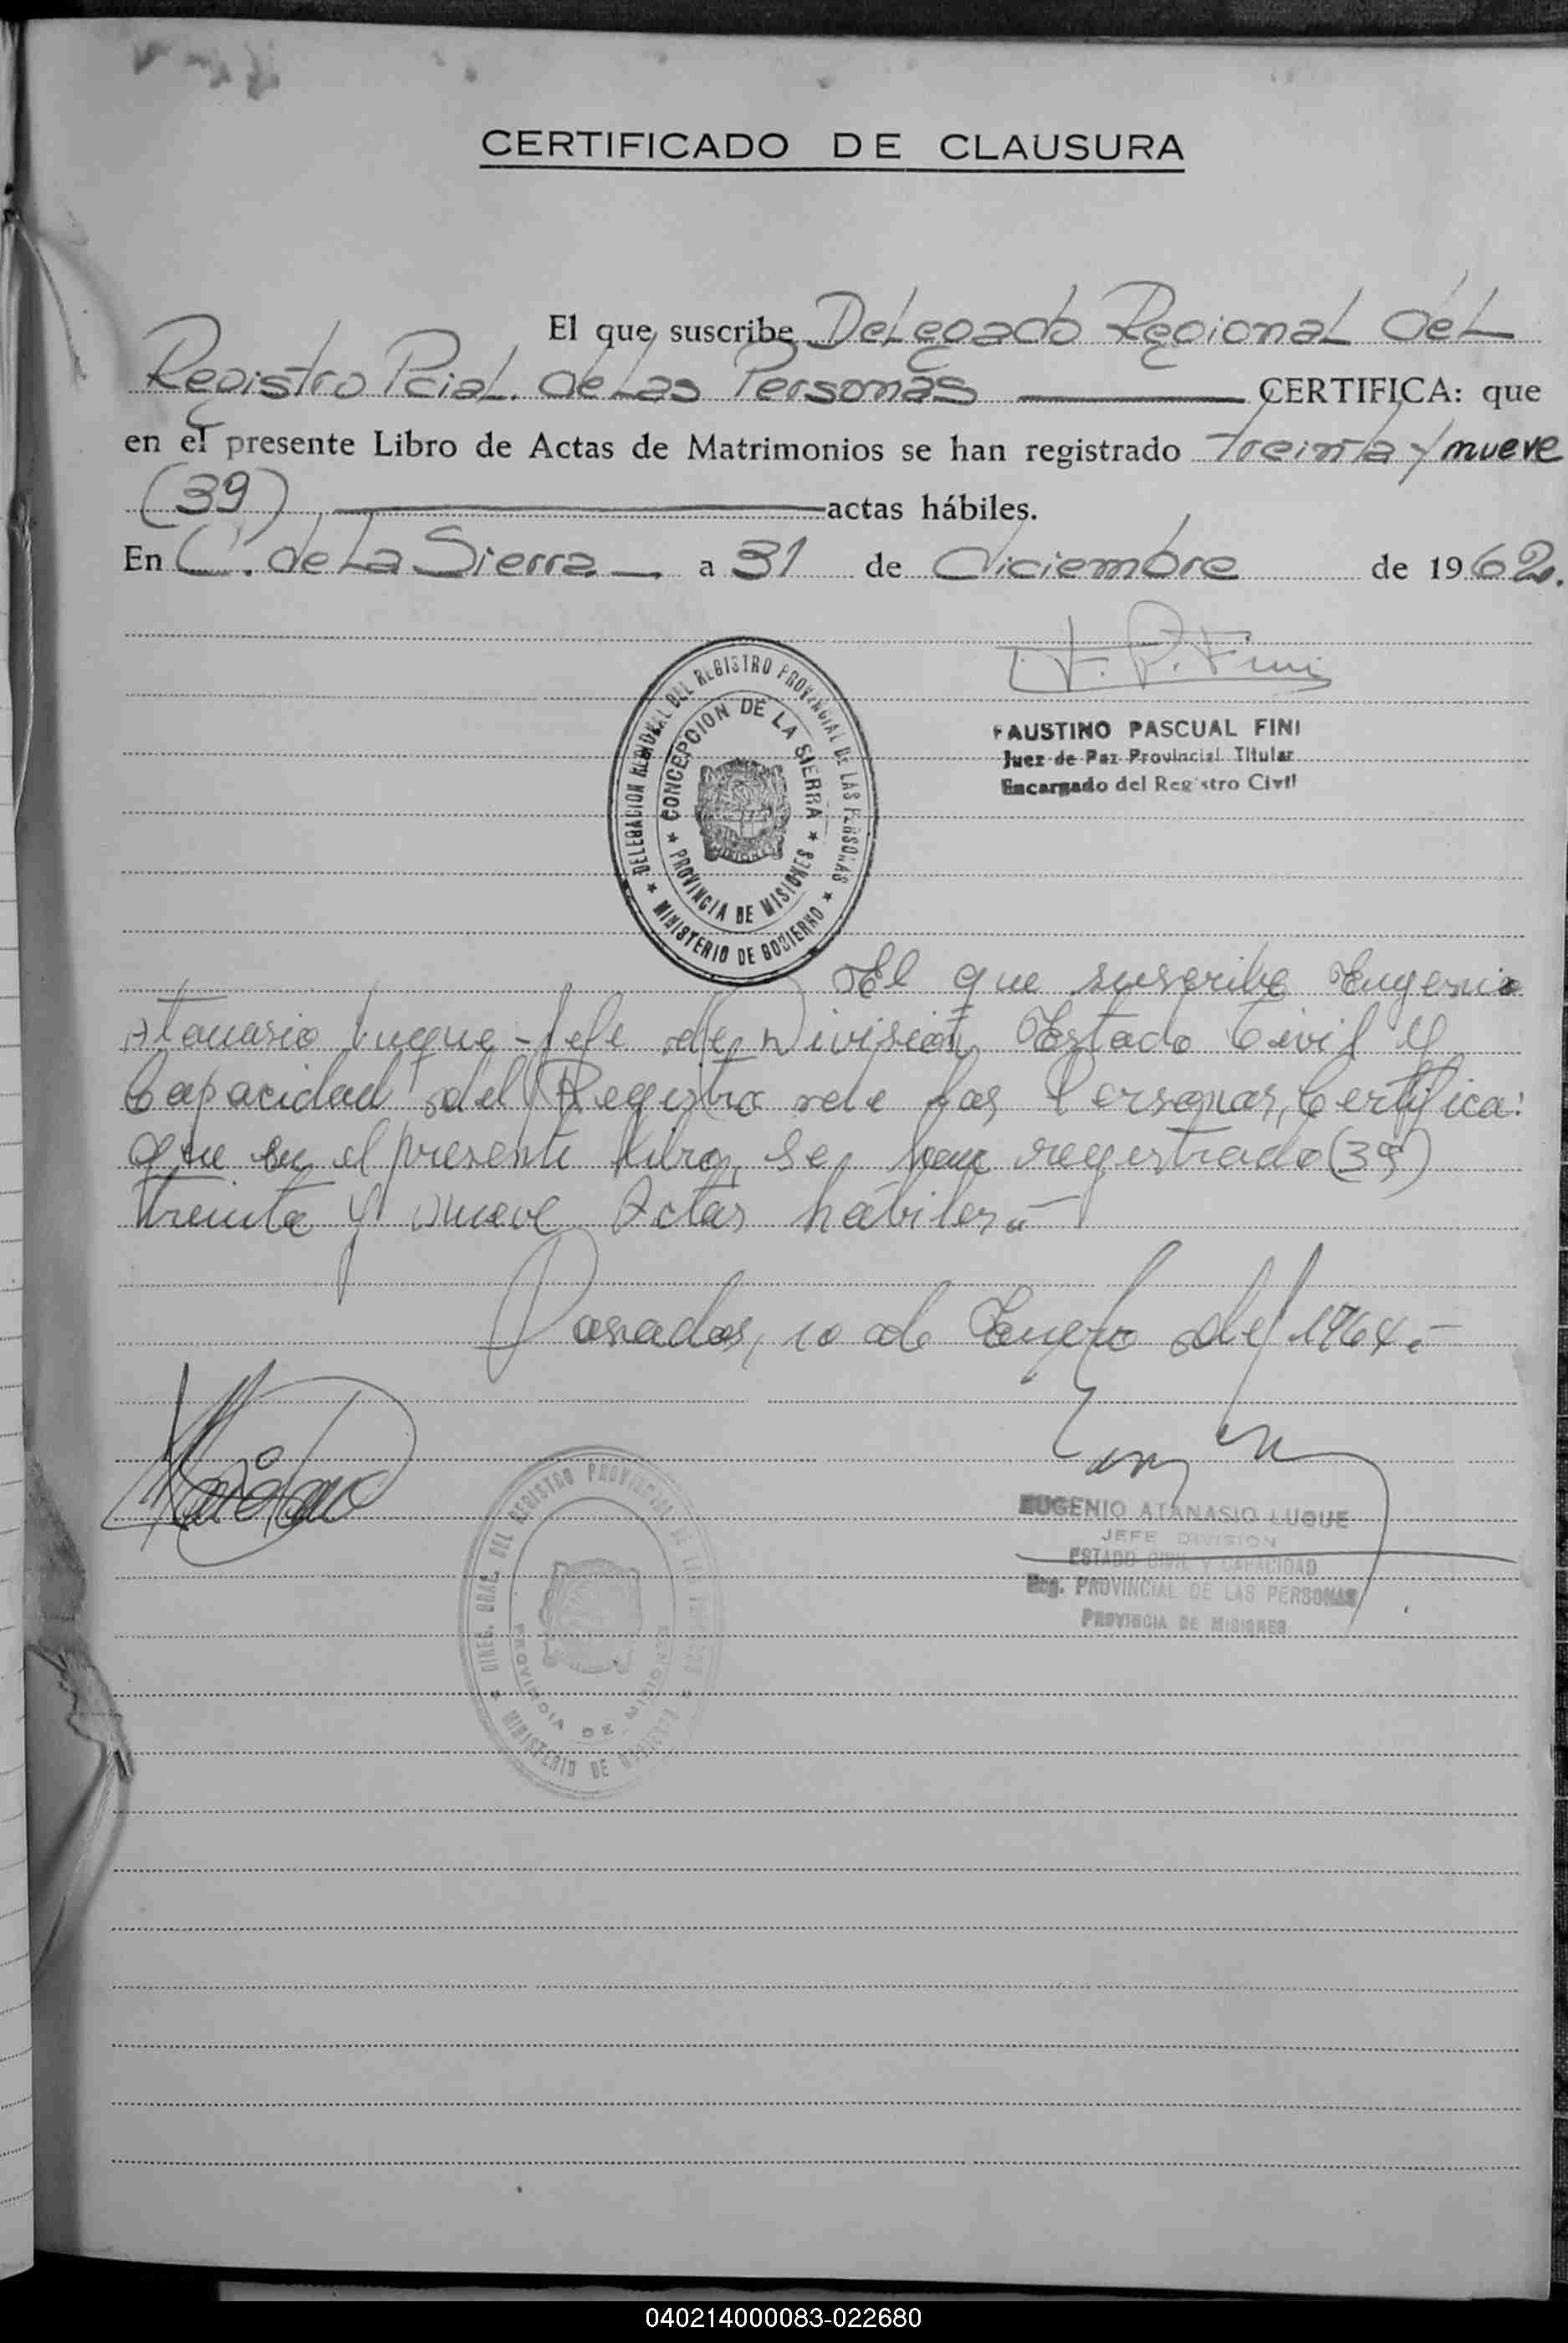 CERTIFICADO DE CLAUSURA
El que suscribe Delegado Regional del
Registro Pcial. de Las Personas CERTIFICA: que
en el presente Libro de Actas de Matrimonios se han registrado treinta y nueve
(39) actas hábiles.
En C. de La Sierra a 31 de diciembre de 1962.
F. P. Fini
FAUSTINO PASCUAL FINI
Juez de Paz Provincial Titular
Encargado del Registro Civil
DELEGACION REGIONAL DEL REGISTRO PROVINCIAL DE LAS PERSONAS
CONCEPCION DE LA SIERRA
PROVINCIA DE MISIONES
MINISTERIO DE GOBIERNO
El que suscribe Eugenio
Atanasio Luque - Jefe de Division Estado Civil y
Capacidad del Registro de las Personas, Certifica:
que en el presente Libro, se han registrado (39)
treinta y nueve Actas hábiles.-
Posadas, 10 de Enero de 1964.-
EUGENIO ATANASIO LUQUE
JEFE DIVISION
ESTADO CIVIL Y CAPACIDAD
Reg. PROVINCIAL DE LAS PERSONAS
PROVINCIA DE MISIONES
DIREC. GRAL. DEL REGISTRO PROVINCIAL DE LAS PERSONAS
PROVINCIA DE MISIONES
MINISTERIO DE GOBIERNO
040214000083-022680